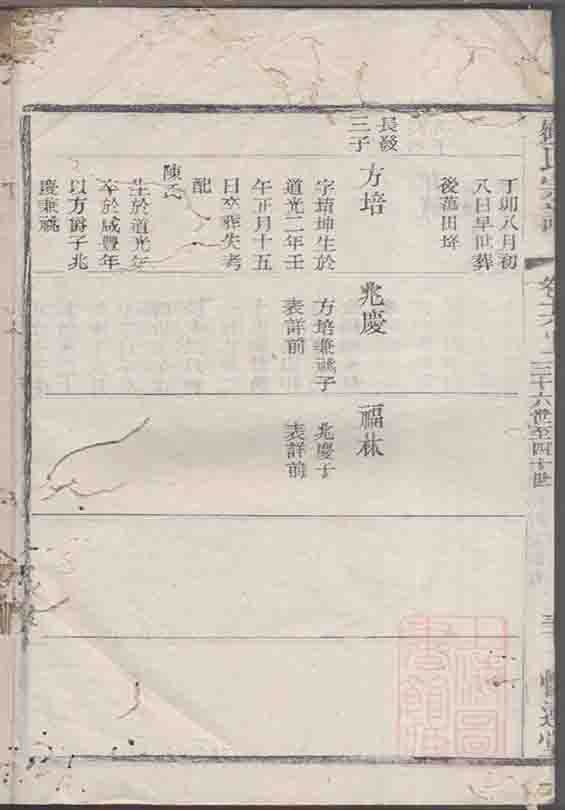 丁卯八月初
八日早世葬
後萬田垶
長發
三子
方培
字埥坤生於
道光二年壬
午正月十五
日卒葬失考
配
陳氏
生於道光年
卒於咸豐年
以方爵子兆
慶兼祧
兆慶
方培兼祧子
表詳前
福林
兆慶子
表詳前
三十六世至四十世